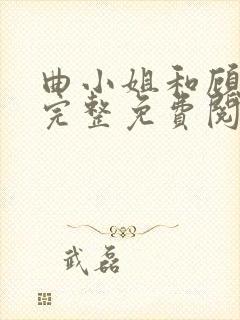 曲小姐和顾
完整免費閱
武磊